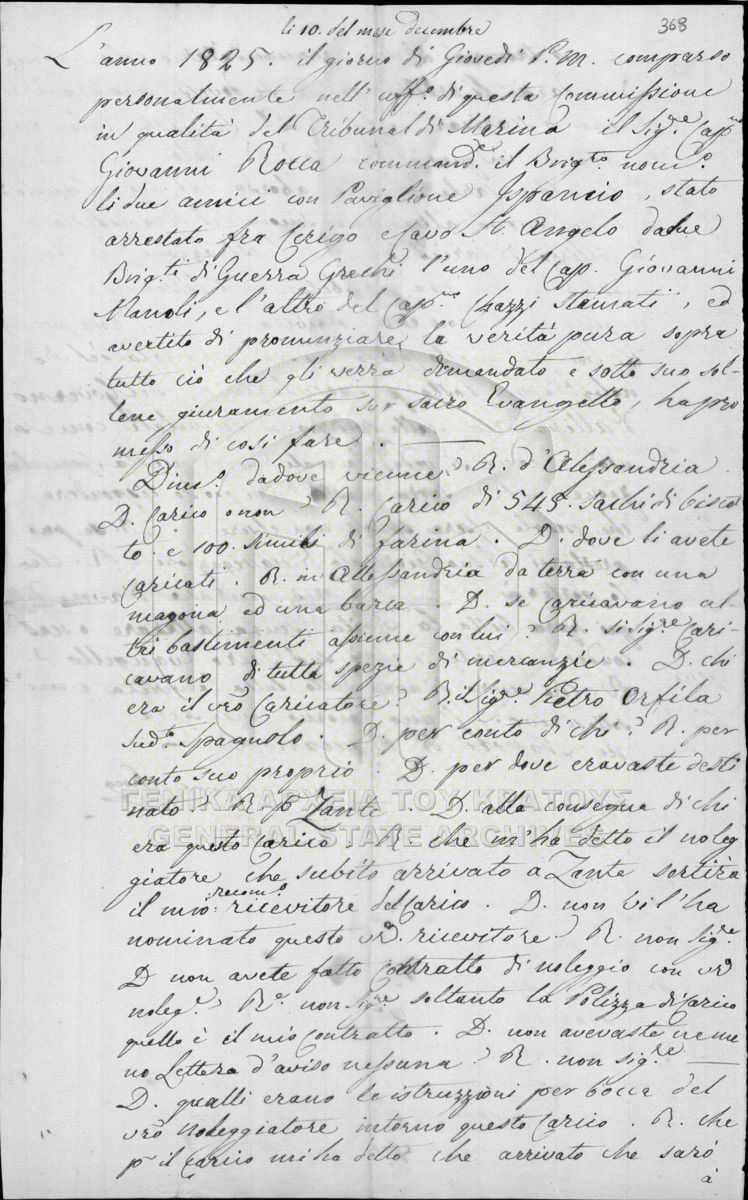 li 10. del mese decembre
368
L'anno 1825. il giorno di Giovedi P. M. comparso
personalmente nell' uff.º di questa Commissione
in qualità del Tribunal di Marina il Sig.re Cap.no
Giovanni Rocca command.e il Brig.to nom.º
li due amici con Paviglione Ispanio, stato
arrestato fra Cerigo e Cavo St Angelo da due
Brig.ti di Guerra Grechi l'uno del Cap. Giovanni
Manoli, e l'altro del Cap.no Chazzi Stamatii, ed
avertito di pronunziare la verità pura sopra
tutto ciò che gli verrà dimandato e sotto suo sol-
lene giuramento sur sacro Evangello, ha pro
messo di così fare.
Dim.º da dove vienne? R. d'Alessandria
D. Carico o non? R. Carico di 543. sachi di bisco
to e 100. simili di farina. D. dove li avete
caricati. R. in Allessandria da terra con una
magona ed una barca. D. se caricavano al-
tri bastimenti assieme con lui? R. si Sig.re Cari-
cavano di tutta spezie di mercanzie. D. chi
era il vrõ Caricatore? R. il Sig.re Pietro Orfila
sud.to Spagnolo. D. per conto di chi? R. per
conto suo proprio. D. per dove eravaste desti
nato? R. p Zante. D. alla consegna di chi
era questo Carico. R. che m'ha detto il noleg
giatore che subito arrivato a Zante sortirà
il mio recom.º ricevitore del Carico. D. non vi l'ha
nominato questo vrõ. ricevitore? R. non Sig.re
D non avete fatto contratto di noleggio con vrõ
noleg.e? R.e non Sig.re soltanto la Polizza di Carico
quello è il mio Contratto. D. non avevaste neme
no Lettera d'aviso nessuna? R. non sig.re
D. qualli erano le istruzzioni per bocca del
vrõ Noleggiatore intorno questo Carico. R. che
p il Carico mi ha detto che arrivato che sarò
à
ΓΕΝΙΚΑ ΑΡΧΕΙΑ ΤΟΥ ΚΡΑΤΟΥΣ
GENERAL STATE ARCHIVES